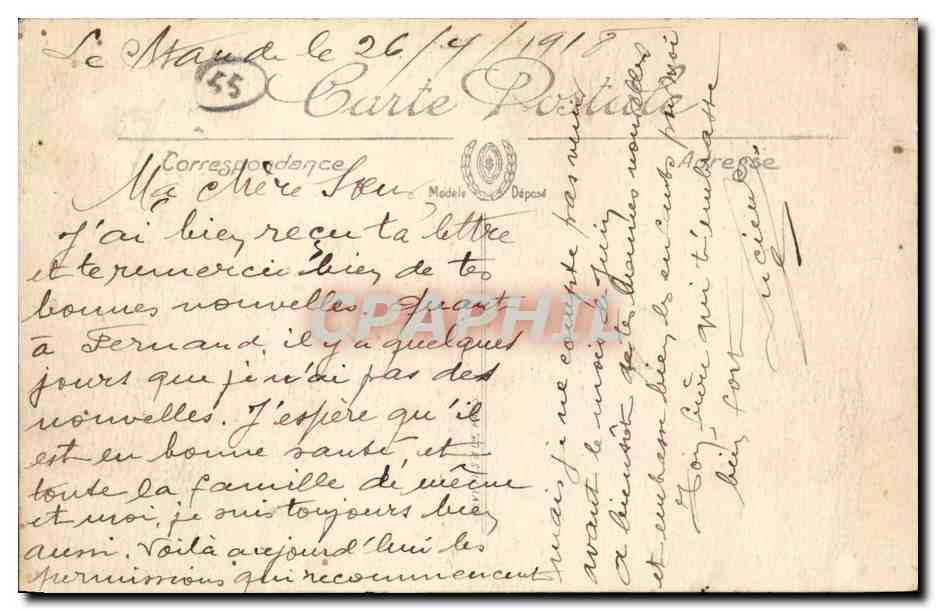 Le Mans le 26/4/1918
55
Carte Postale
Correspondance
Modèle Déposé
Adresse
Ma chère Soeur
J'ai bien reçu ta lettre
et te remercie bien de tes
bonnes nouvelles. Quant
à Fernand, il y a quelques
jours que je n'ai pas des
nouvelles. J'espère qu'il
est en bonne santé, et
toute la famille de même
et moi, je suis toujours bien
aussi. Voilà aujourd'hui les
permissions qui recommencent
mais je ne compte pas venir
avant le mois de Juin
a bientôt de tes bonnes nouvelles
et embrasse bien les enfants pour moi
Ton frère qui t'embrasse
bien fort
Lucien
CPAPHIL